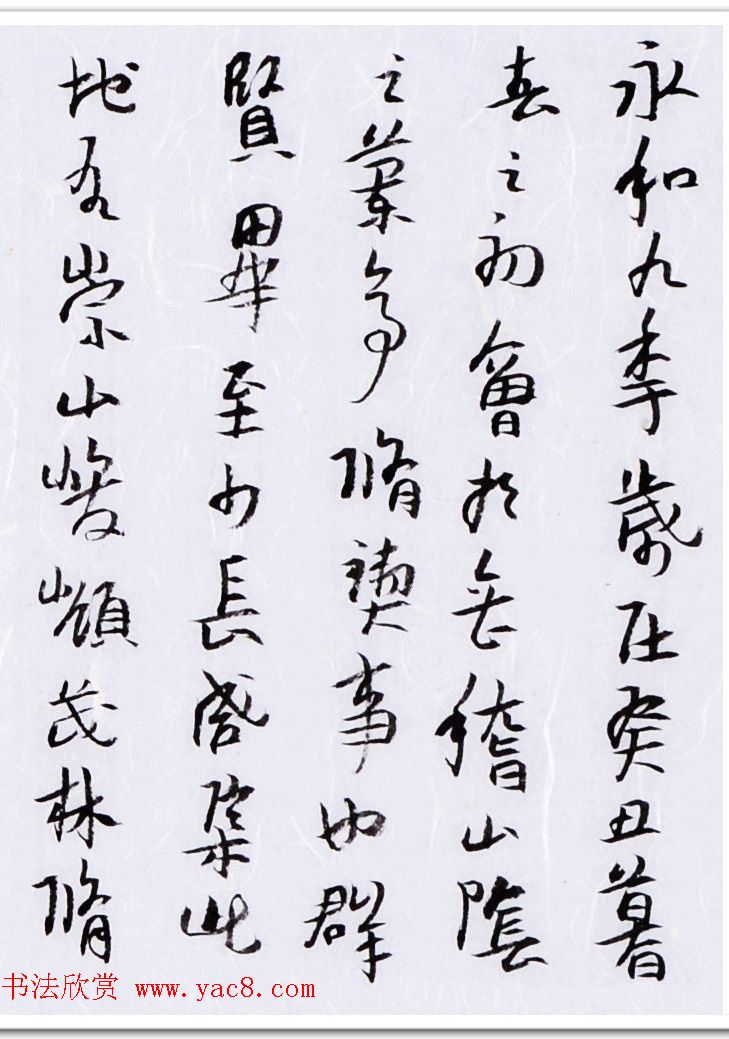 永和九季歲在癸丑暮
春之初會於會稽山陰
之蘭亭脩禊事也群
賢畢至少長咸集此
地有崇山峻領茂林脩
书法欣赏 www.yac8.com